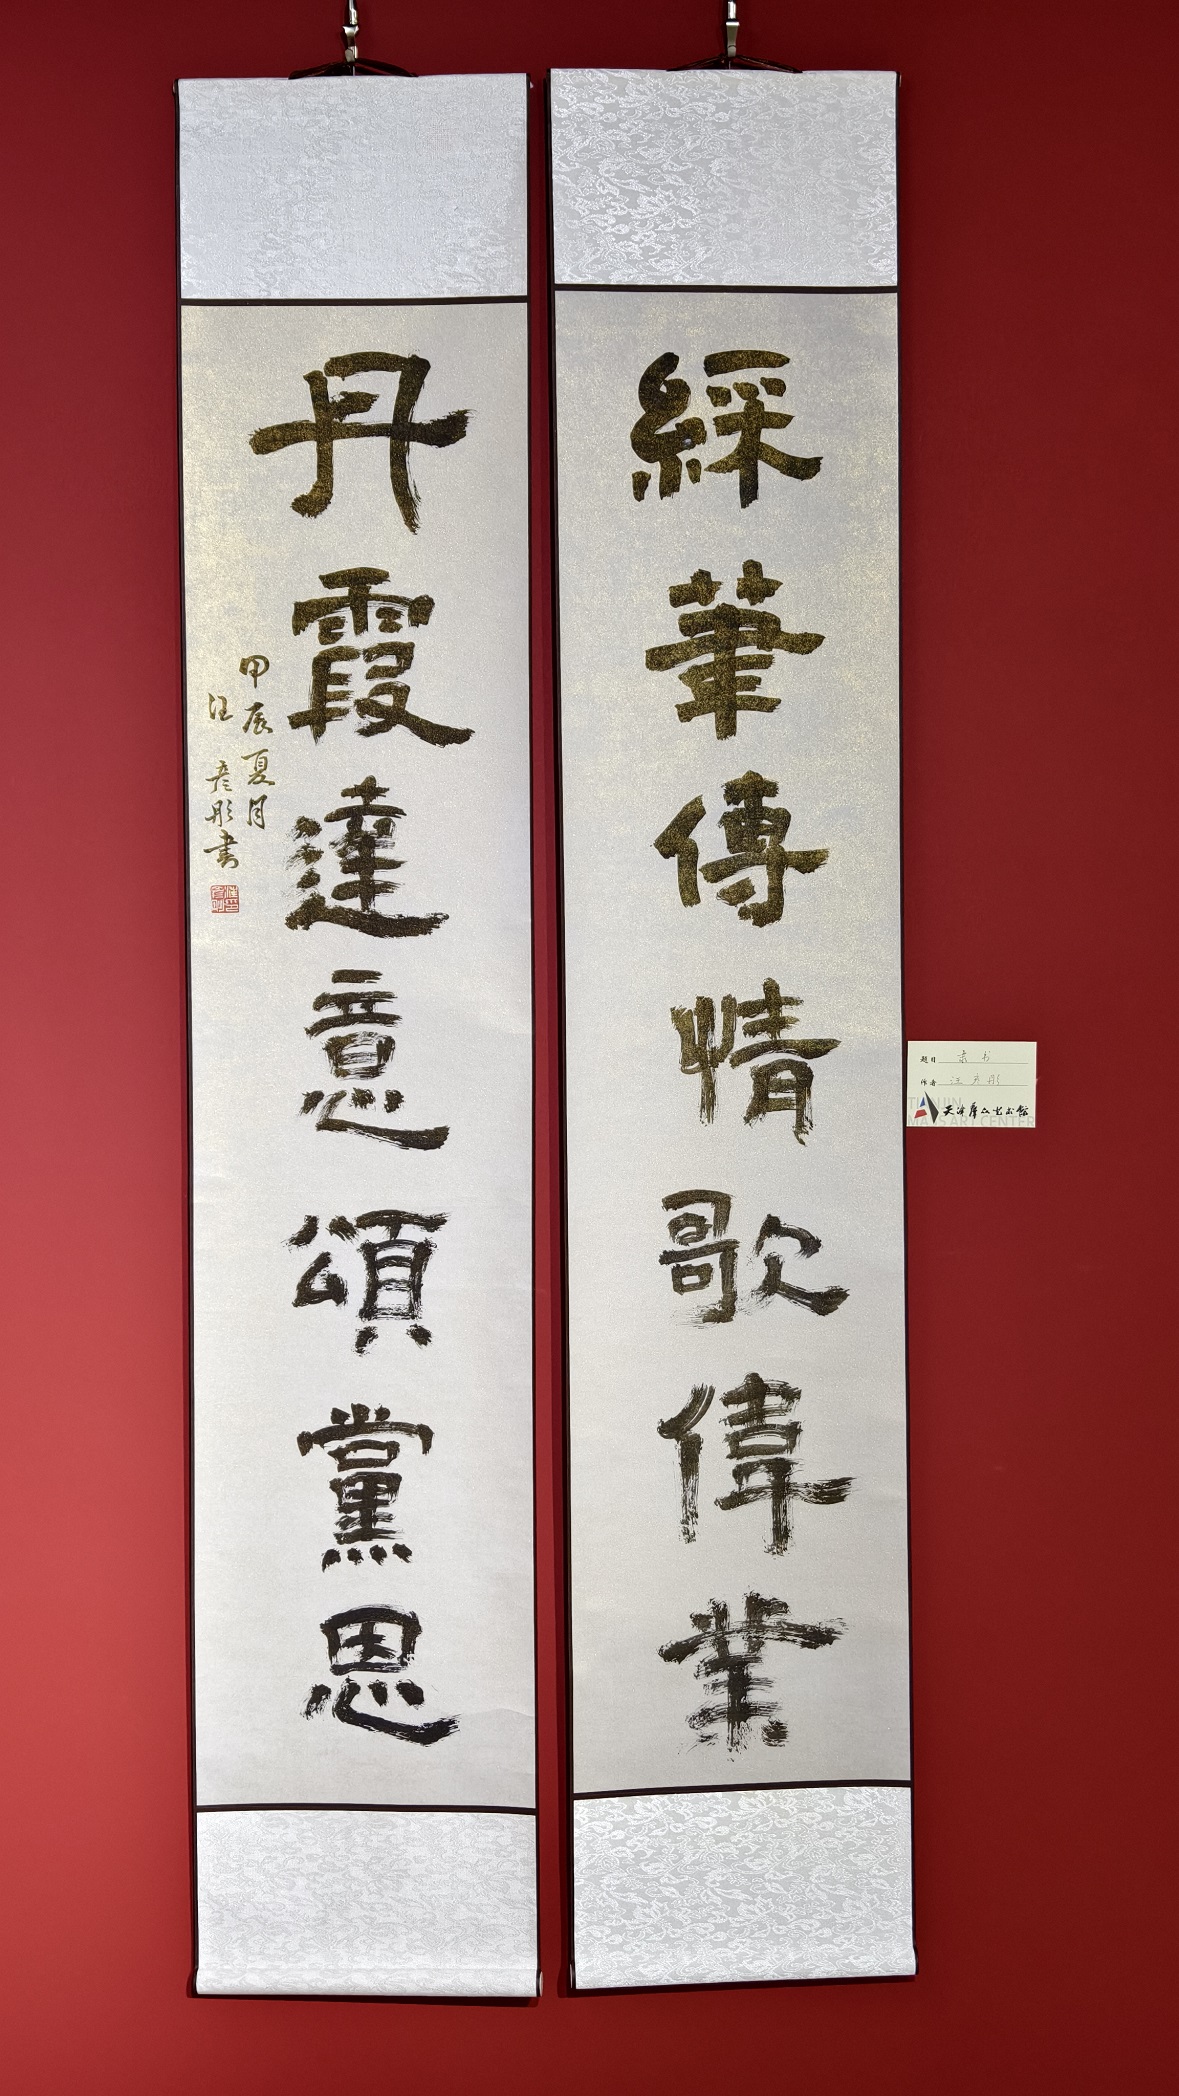 綵筆傳情歌偉業
丹霞達意頌黨恩
甲辰夏月
汪彦彤書
题目 隶书
作者 汪彦彤
天津群众艺术馆
TIANJIN
MASS ART CENTER